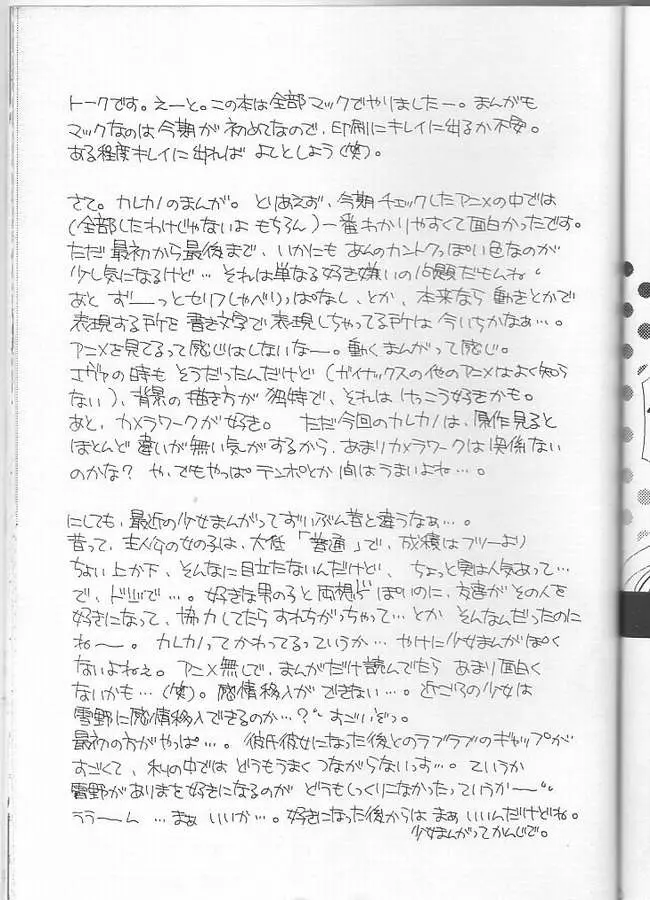 トークです。えーと。この本は全部マックでやりましたー。まんがも
マックなのは今期が初めてなので、印刷にキレイに出るか不安。
ある程度キレイに出れば よしとしよう(笑)。
さて。カレカノのまんが。とりあえず、今期チェックしたアニメの中では
(全部したわけじゃないよ もちろん)一番わかりやすくて面白かったです。
ただ最初から最後まで、いかにも あのカントクっぽい色なのが
少し気になるけど… それは単なる好き嫌いの問題だもんね。
あと ずーーっとセリフしゃべりっぱなし、とか、本来なら 動きとかで
表現する所を 書き文字で表現しちゃってる所は 今いちかなぁ…。
アニメを見てるって感じはしないなー。動くまんがって感じ。
エヴァの時も そうだったんだけど(ガイナックスの他のアニメはよく知ら
ない)、背景の描き方が 独特で、それは けっこう好きかも。
あと、カメラワークが好き。 ただ今回のカレカノは、原作見ると
ほとんど違いが無い気がするから、あまりカメラワークは関係ない
のかな? や、でもやっぱテンポとか 間はうまいよね…。
にしても、最近の少女まんがってずいぶん昔と違うなぁ…。
昔って、主人公の女の子は、大低「普通」で、成績はフツーより
ちょい上か下、そんなに目立たないんだけど、 ちょっと実は人気あって…
で、ドジで…。好きな男のコと両想いぽいのに、友達がその人を
好きになって、協力してたら すれちがっちゃって…とか そんなんだったのに
ねー。 カレカノってかわってるっていうか… やけに少女まんがぽく
ないよねぇ。アニメ無しで、まんがだけ読んでたら あまり面白く
ないかも…(笑)。感情移入が できない…。近ごろの少女は
雪野に感情移入できるのか…?" すごいぞっ。
最初の方がやっぱ…。彼氏彼女になった後とのラブラブのギャップが
すごくて、私の中では どうもうまく つながらないっす…。ていうか
雪野がありまを好きになるのが どうもしっくりこなかったっていうかー"
うらーん …まぁ いいか…。好きになった後からは まぁ いいんだけどね。
少女まんがってかんじで。